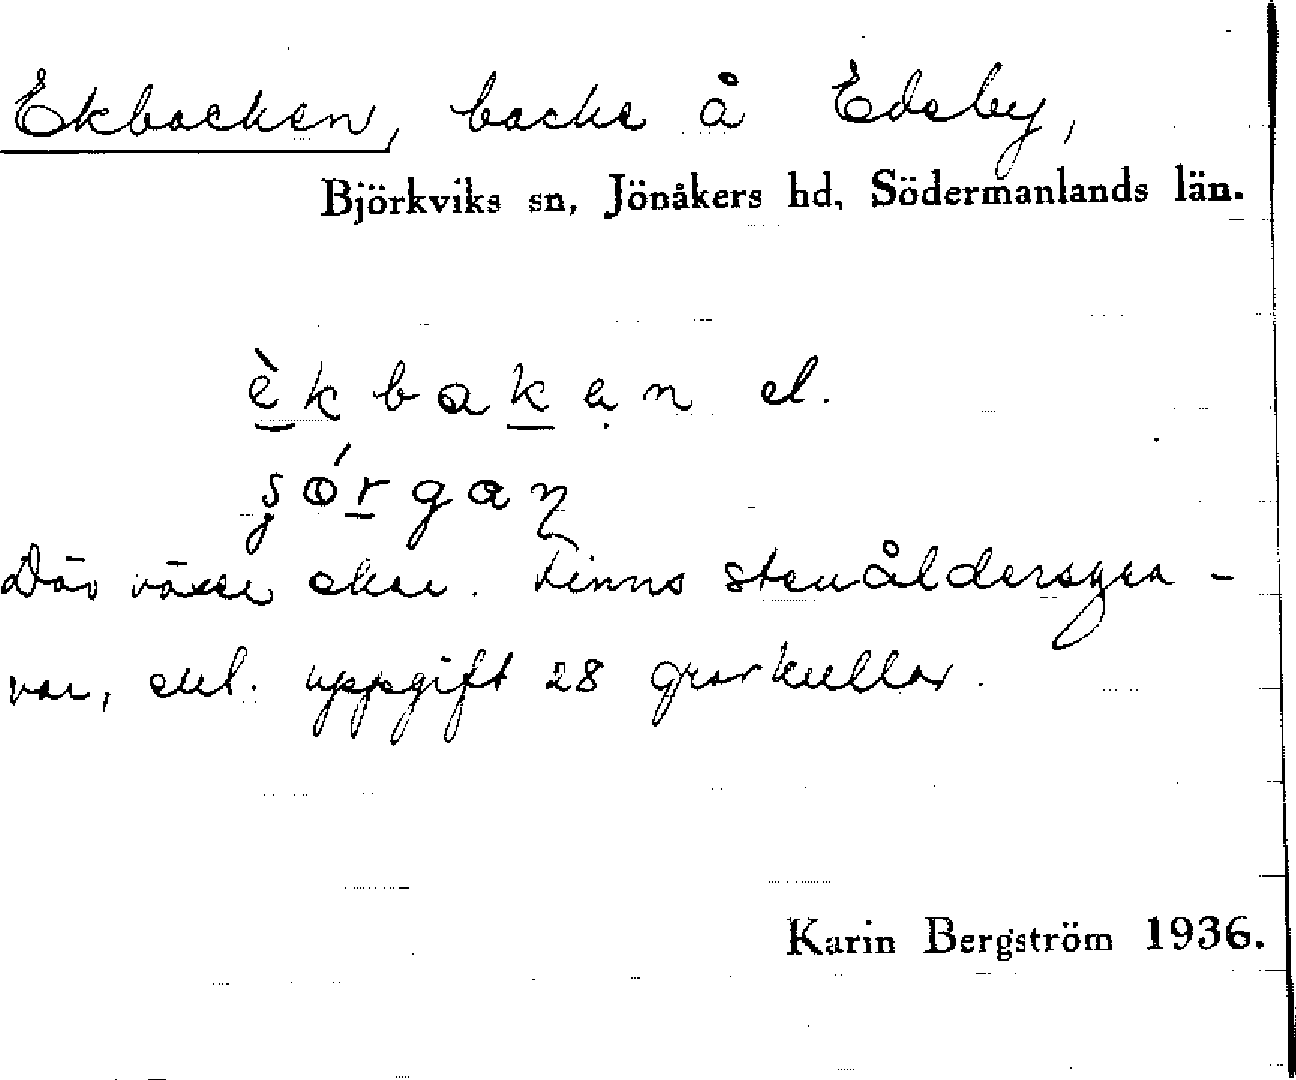 Ekbacken, backe å Edeby,
Björkviks sn, Jönåkers hd, Södermanlands län.
èkbakạn el.
Där växer ekar. Finns stenåldersgra-
var, enl. uppgift 28 gravkullar.
Karin Bergström 1936.